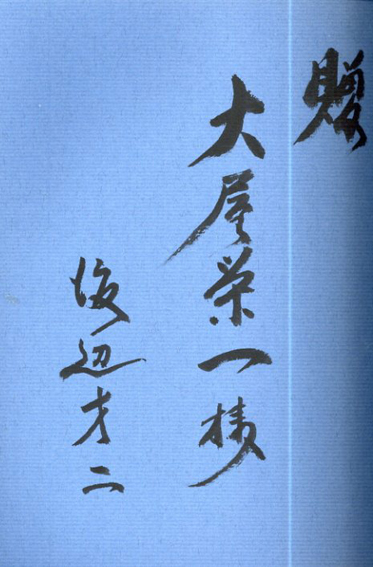 贈
大屋栄一様
渡辺才二